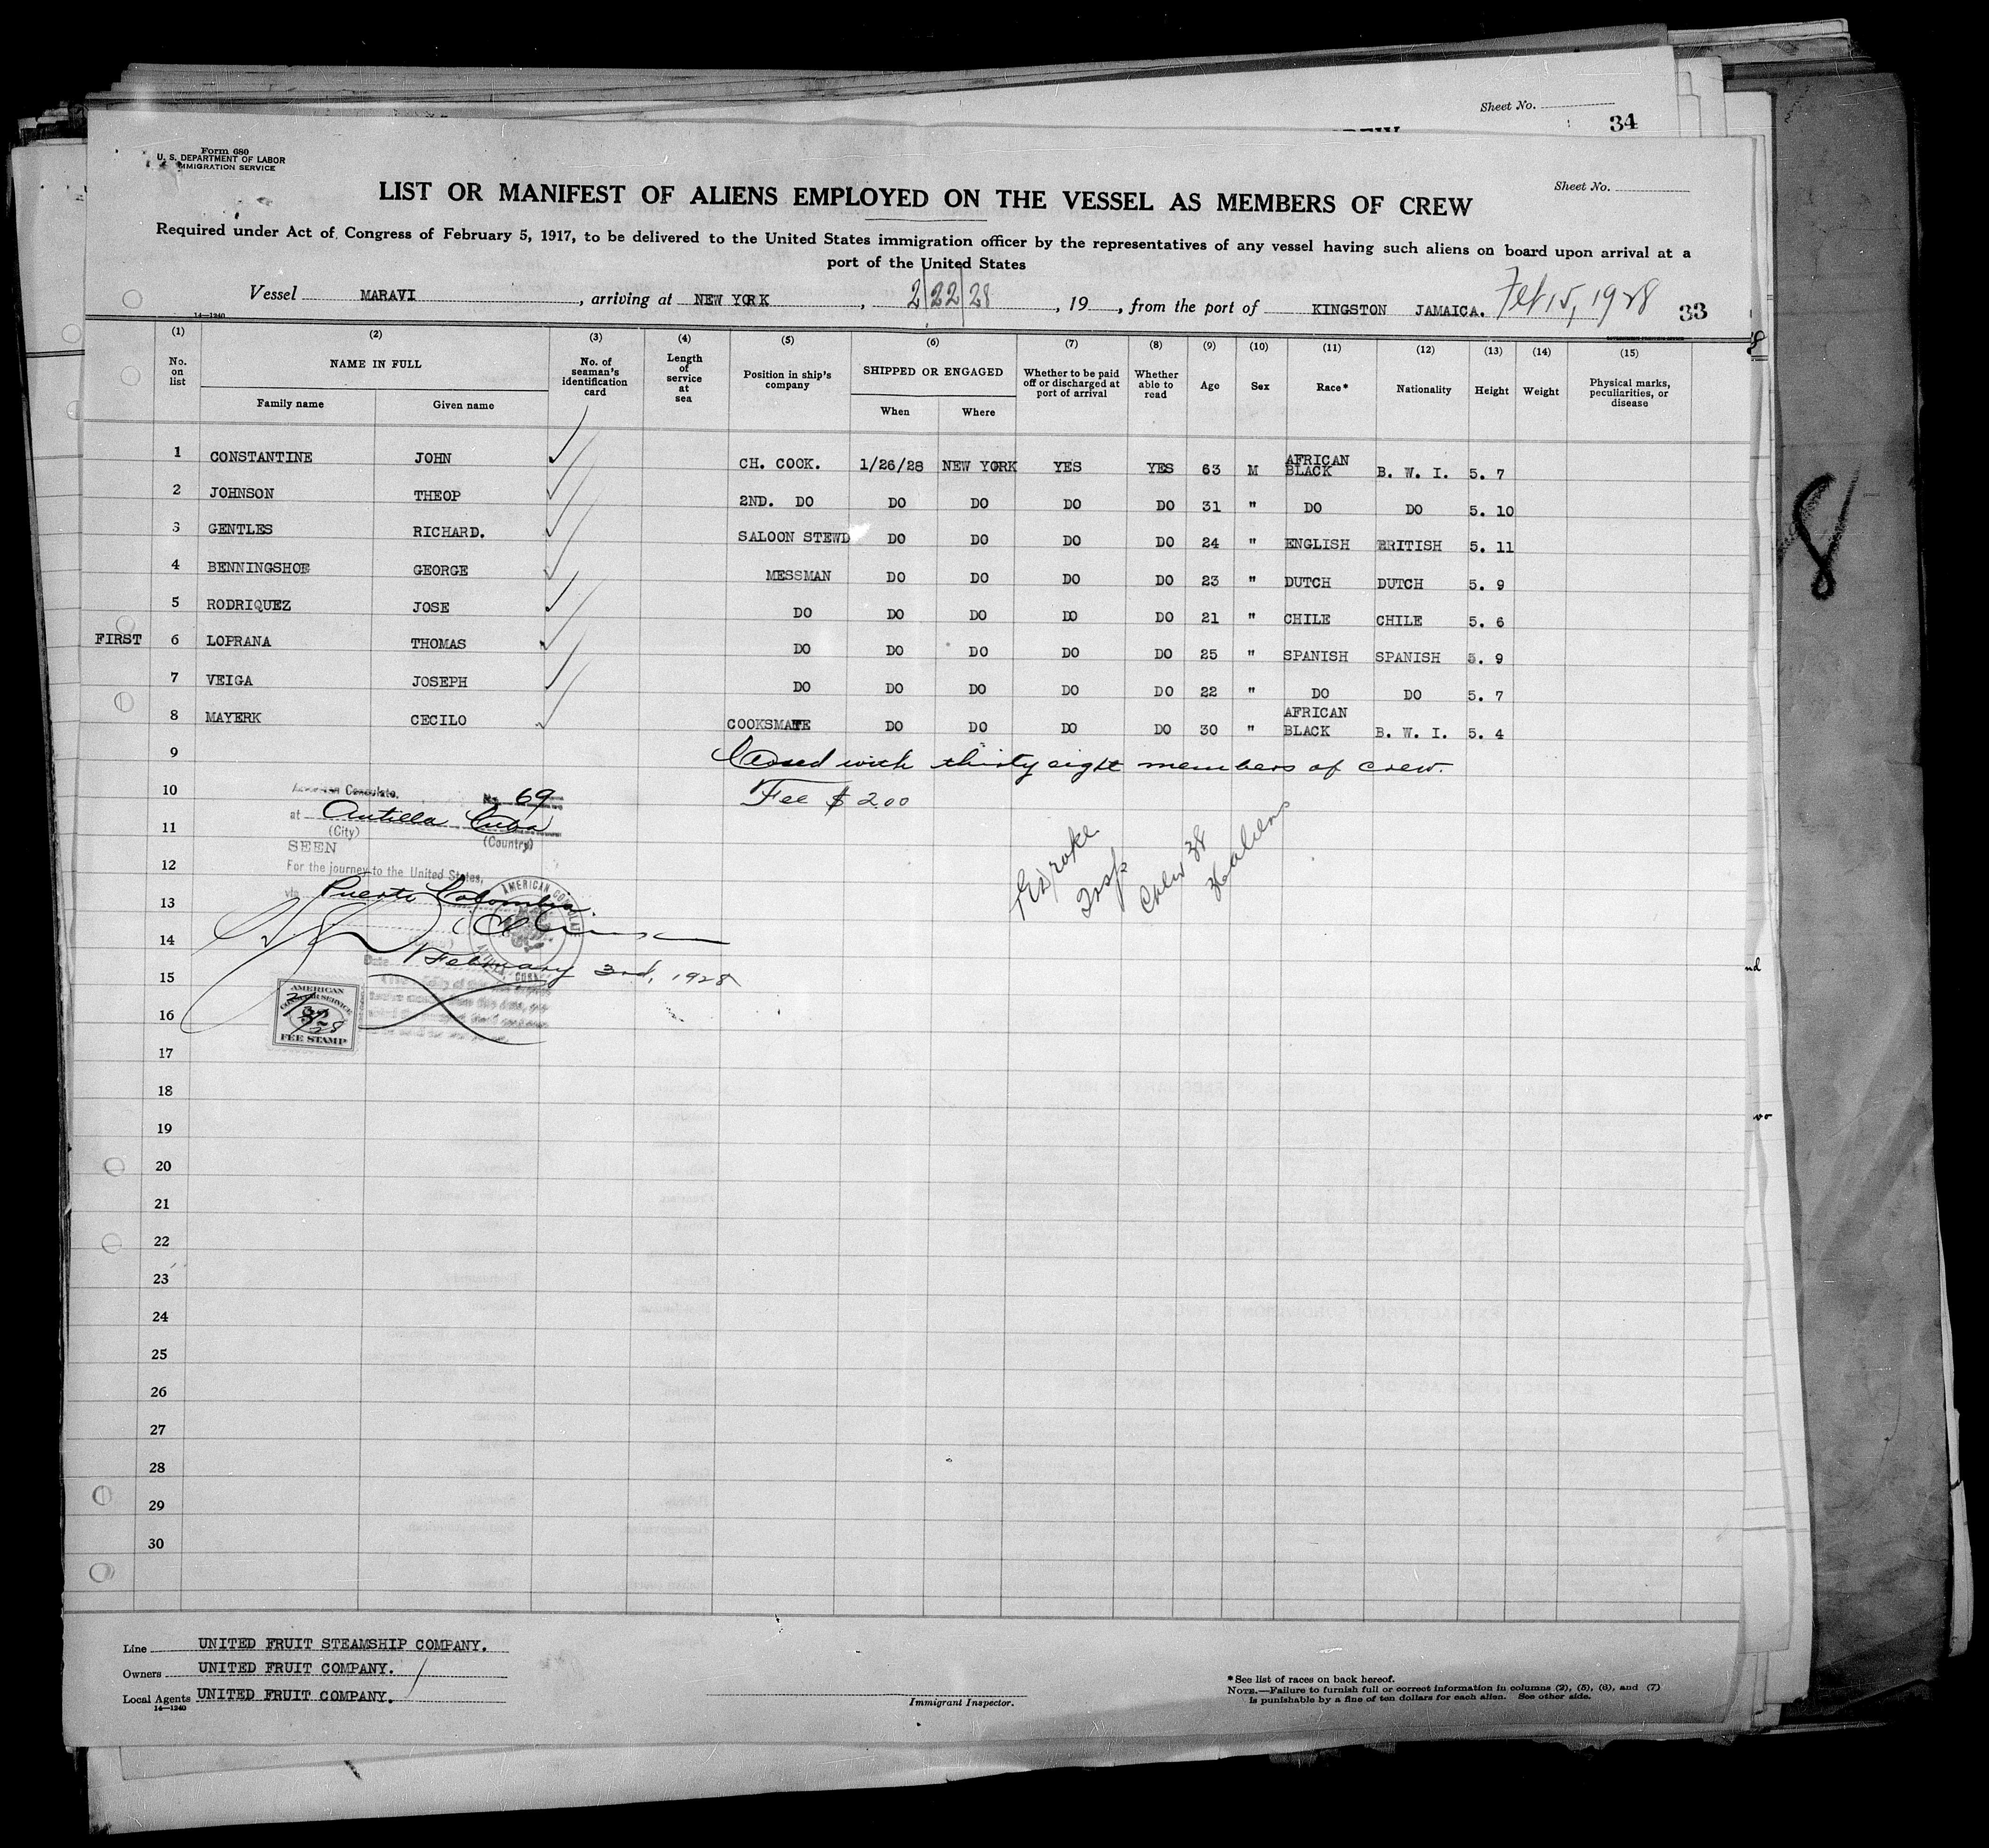 Sheet No.
34
Form 680
U. S. DEPARTMENT OF LABOR
IMMIGRATION SERVICE
Sheet No.
LIST OR MANIFEST OF ALIENS EMPLOYED ON THE VESSEL AS MEMBERS OF CREW
Required under Act of Congress of February 5, 1917, to be delivered to the United States immigration officer by the representatives of any vessel having such aliens on board upon arrival at a
port of the United States
Vessel MARAVI, arriving at NEW YORK, 2/22/28, 19, from the port of KINGSTON JAMAICA. Feb 15, 1928 33
14—1240
(1) (2) (3) (4) (5) (6) (7) (8) (9) (10) (11) (12) (13) (14) (15)
No. on list NAME IN FULL No. of seaman's identification card Length of service at sea Position in ship's company SHIPPED OR ENGAGED Whether to be paid off or discharged at port of arrival Whether able to read Age Sex Race* Nationality Height Weight Physical marks, peculiarities, or disease
Family name Given name When Where
1 CONSTANTINE JOHN CH. COOK. 1/26/28 NEW YORK YES YES 63 M AFRICAN BLACK B. W. I. 5. 7
2 JOHNSON THEOP 2ND. DO DO DO DO DO 31 " DO DO 5. 10
3 GENTLES RICHARD. SALOON STEWD DO DO DO DO 24 " ENGLISH BRITISH 5. 11
4 BENNINGSHOF GEORGE MESSMAN DO DO DO DO 23 " DUTCH DUTCH 5. 9
5 RODRIQUEZ JOSE DO DO DO DO DO 21 " CHILE CHILE 5. 6
FIRST 6 LOPRANA THOMAS DO DO DO DO DO 25 " SPANISH SPANISH 5. 9
7 VEIGA JOSEPH DO DO DO DO DO 22 " DO DO 5. 7
8 MAYERK CECILO COOKSMATE DO DO DO DO 30 " AFRICAN BLACK B. W. I. 5. 4
9 Closed with thirty eight members of crew.
10 Fee $2.00
American Consulate. No. 69
at Antilla Cuba
11
(City) (Country)
SEEN
12
For the journey to the United States,
via Puerto Colombia.
13
14
Date February 3rd, 1928
15
AMERICAN CONSULATE
ANTILLA, CUBA
AMERICAN
CONSULAR SERVICE
FEE STAMP
Crew 38
16
17
18
19
20
21
22
23
24
25
26
27
28
29
30
Line UNITED FRUIT STEAMSHIP COMPANY.
Owners UNITED FRUIT COMPANY.
Local Agents UNITED FRUIT COMPANY.
14—1240
Immigrant Inspector.
*See list of races on back hereof.
NOTE.—Failure to furnish full or correct information in columns (2), (5), (6), and (7)
is punishable by a fine of ten dollars for each alien. See other side.
8